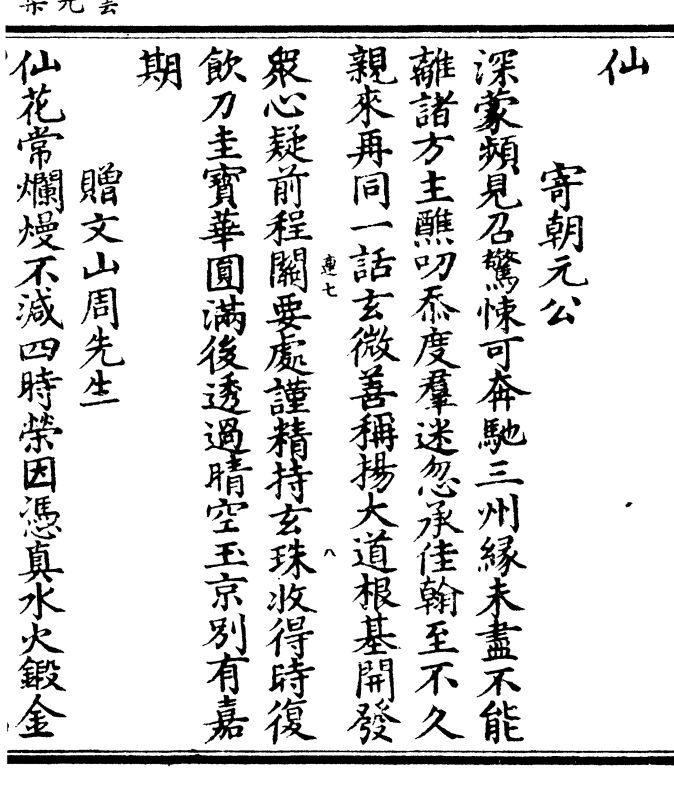 仙
寄朝元公
深蒙頻見召驚悚可奔馳三州緣未盡不能
離諸方主醮叨忝度羣迷忽承佳翰至不久
親來再同一話玄微善稱揚大道根基開發
連七
八
衆心疑前程關要處謹精持玄珠收得時復
飲刀圭寶華圓滿後透過晴空玉京別有嘉
期
贈文山周先生
仙花常爛熳不減四時榮因憑真水火鍛金